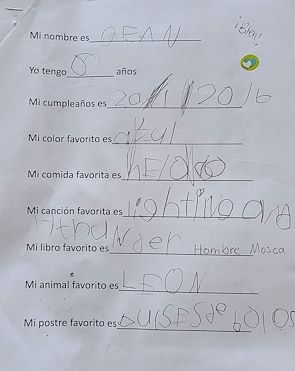 ¡Bien!
Mi nombre es SEAN
Yo tengo 8 años
Mi cumpleaños es 20/1/2016
Mi color favorito es azul
Mi comida favorita es helado
Mi canción favorita es lighting and
thunder
Mi libro favorito es Hombre Mosca
Mi animal favorito es LEON
Mi postre favorito es bolos